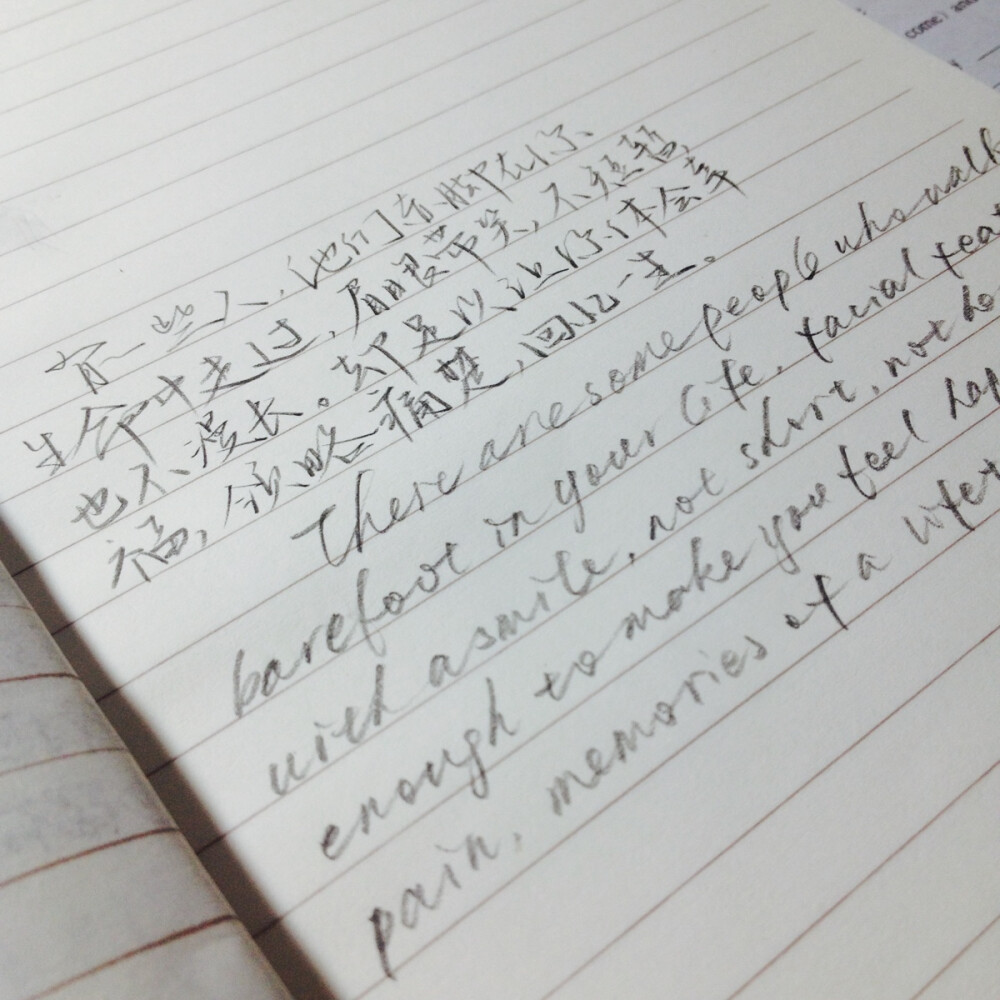 come) and
有一些人，他们赤脚在你
生命中走过，眉眼带笑，不短暂，
也不漫长。却足以让你体会幸
福，领略痛楚，回忆一生。
There are some people who walk
barefoot in your life, facial feat
with a smile, not short, not lo
enough to make you feel hap
pain, memories of a lifet